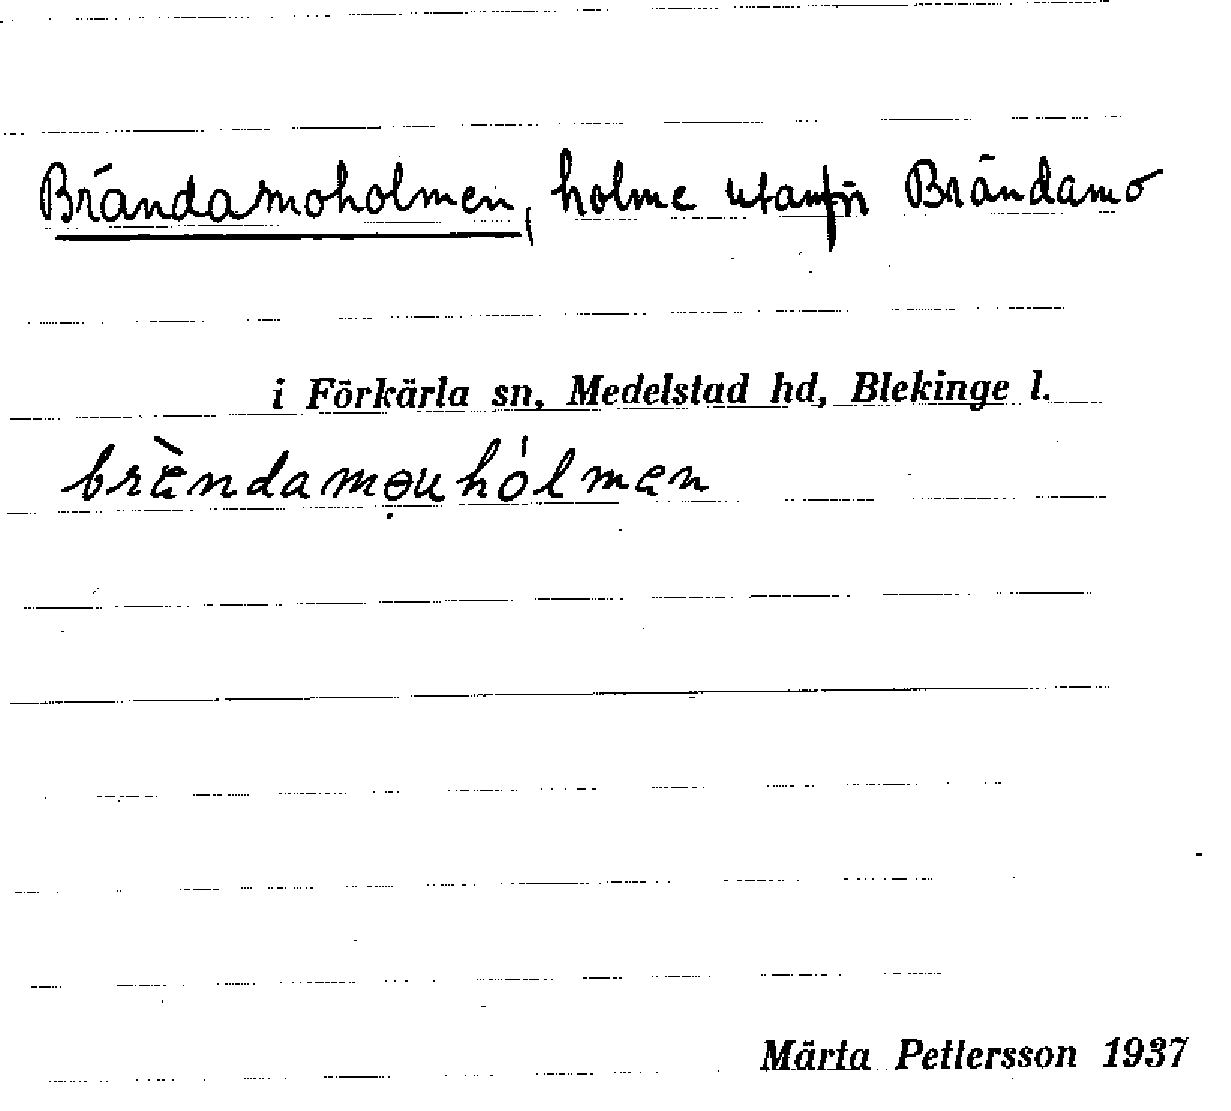 Brändamoholmen, holme utanför Brändamo
i Förkärla sn, Medelstad hd, Blekinge l.
brèndamɵuhólmen
Märta Pettersson 1937